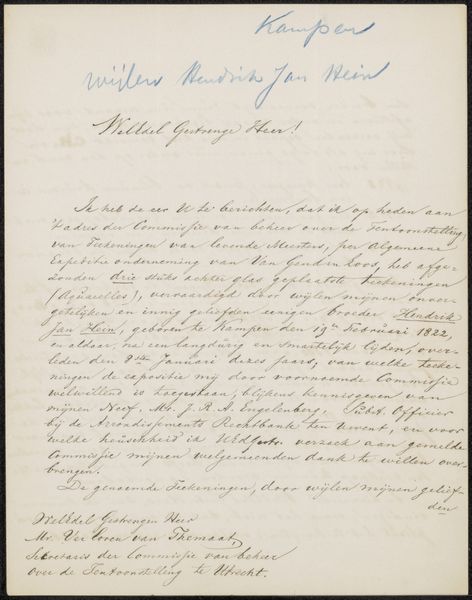 Kampen
wijlen Hendrik Jan Hein
WelEdel Gestrenge Heer!
Ik heb de eer U te berichten, dat ik op heden aan
't adres der Commissie van beheer over de Tentoonstelling
van Teekeningen van levende Meesters, per Algemeene
Expeditie onderneming van Van Gend en Loos, heb afge-
zonden drie stuks achter glas geplaatste teekeningen
(Aquarelles), vervaardigd door wijlen mijnen onver-
getelijken en innig geliefden eenigen broeder Hendrik
Jan Hein, geboren te Kampen den 19en Februari 1822,
en aldaar, na een langdurig en smartelijk lijden, over-
leden den 9den Januari dezes jaars; van welke teeke-
ningen de expositie mij door voornoemde Commissie
welwillend is toegestaan; blijkens kennisgeven van
mijnen Neef, Mr. J. R. A. Engelenberg, Subst. Officier
bij de Arrondissements Rechtbank ten uwent, en voor
welke heuschheid ik UEdGestr. verzoek aan gemelde
Commissie mijnen welgemeenden dank te willen over-
brengen.
De genoemde Teekeningen, door wijlen mijnen gelief-
den
WelEdel Gestrengen Heer
Mr. Ver Loren van Themaat
Secretaris der Commissie van beheer
over de Tentoonstelling te Utrecht.